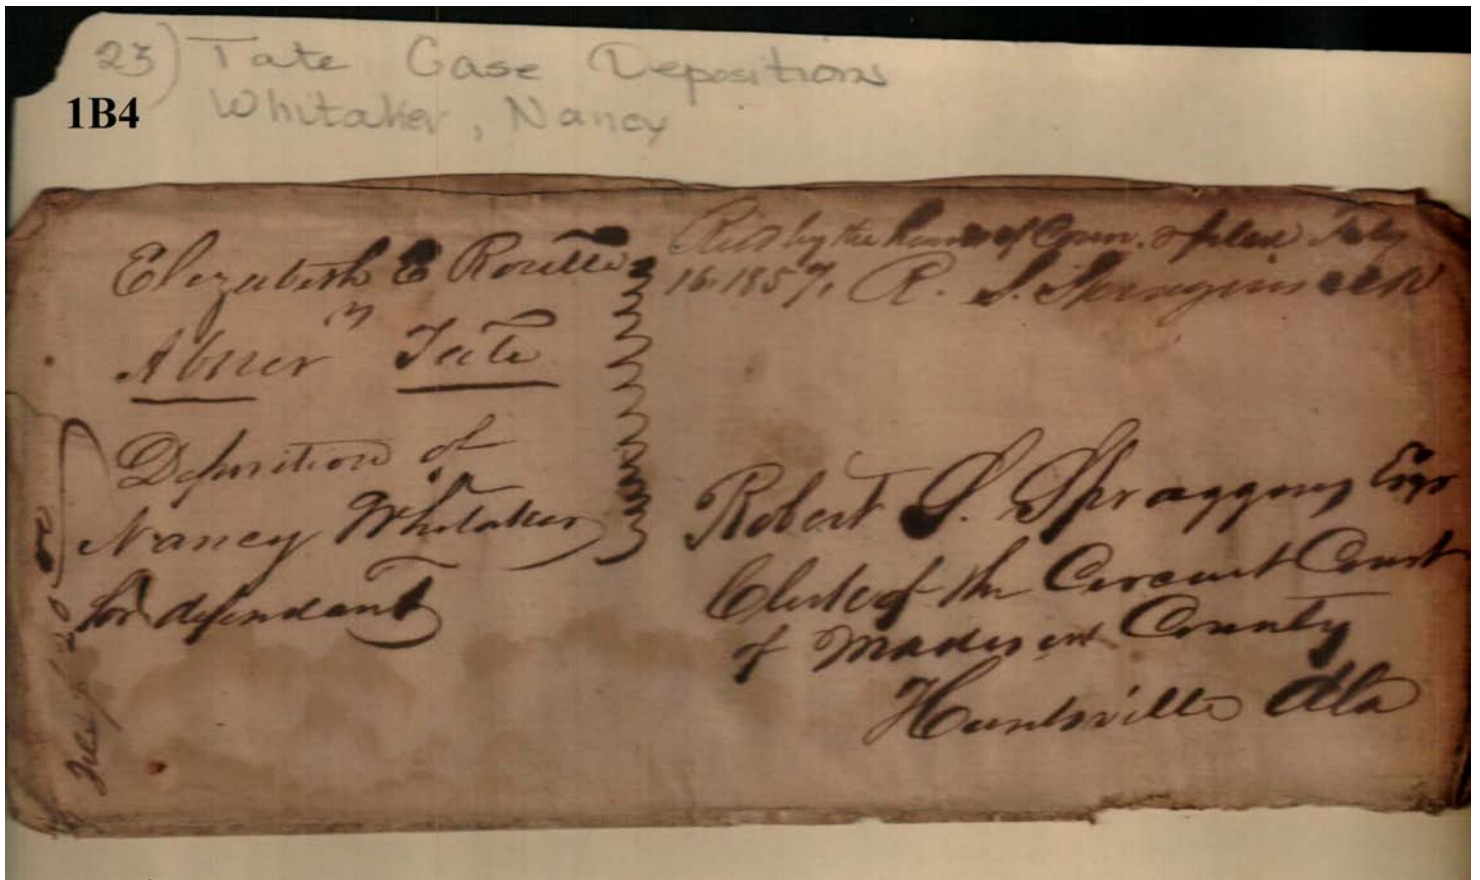 23) Tate Case Depositions
1B4
Whitaker, Nancy
Elizabeth E Routt
vs
Abner Tate
Deposition of
Nancy Whitaker
for defendant
Recd by the hands of Comr. & filed July
16. 1857, R. S. Spragins clk
Robert S. Spraggins Esqr
Clerk of the Circuit Court
of Madison County
Huntsville Ala